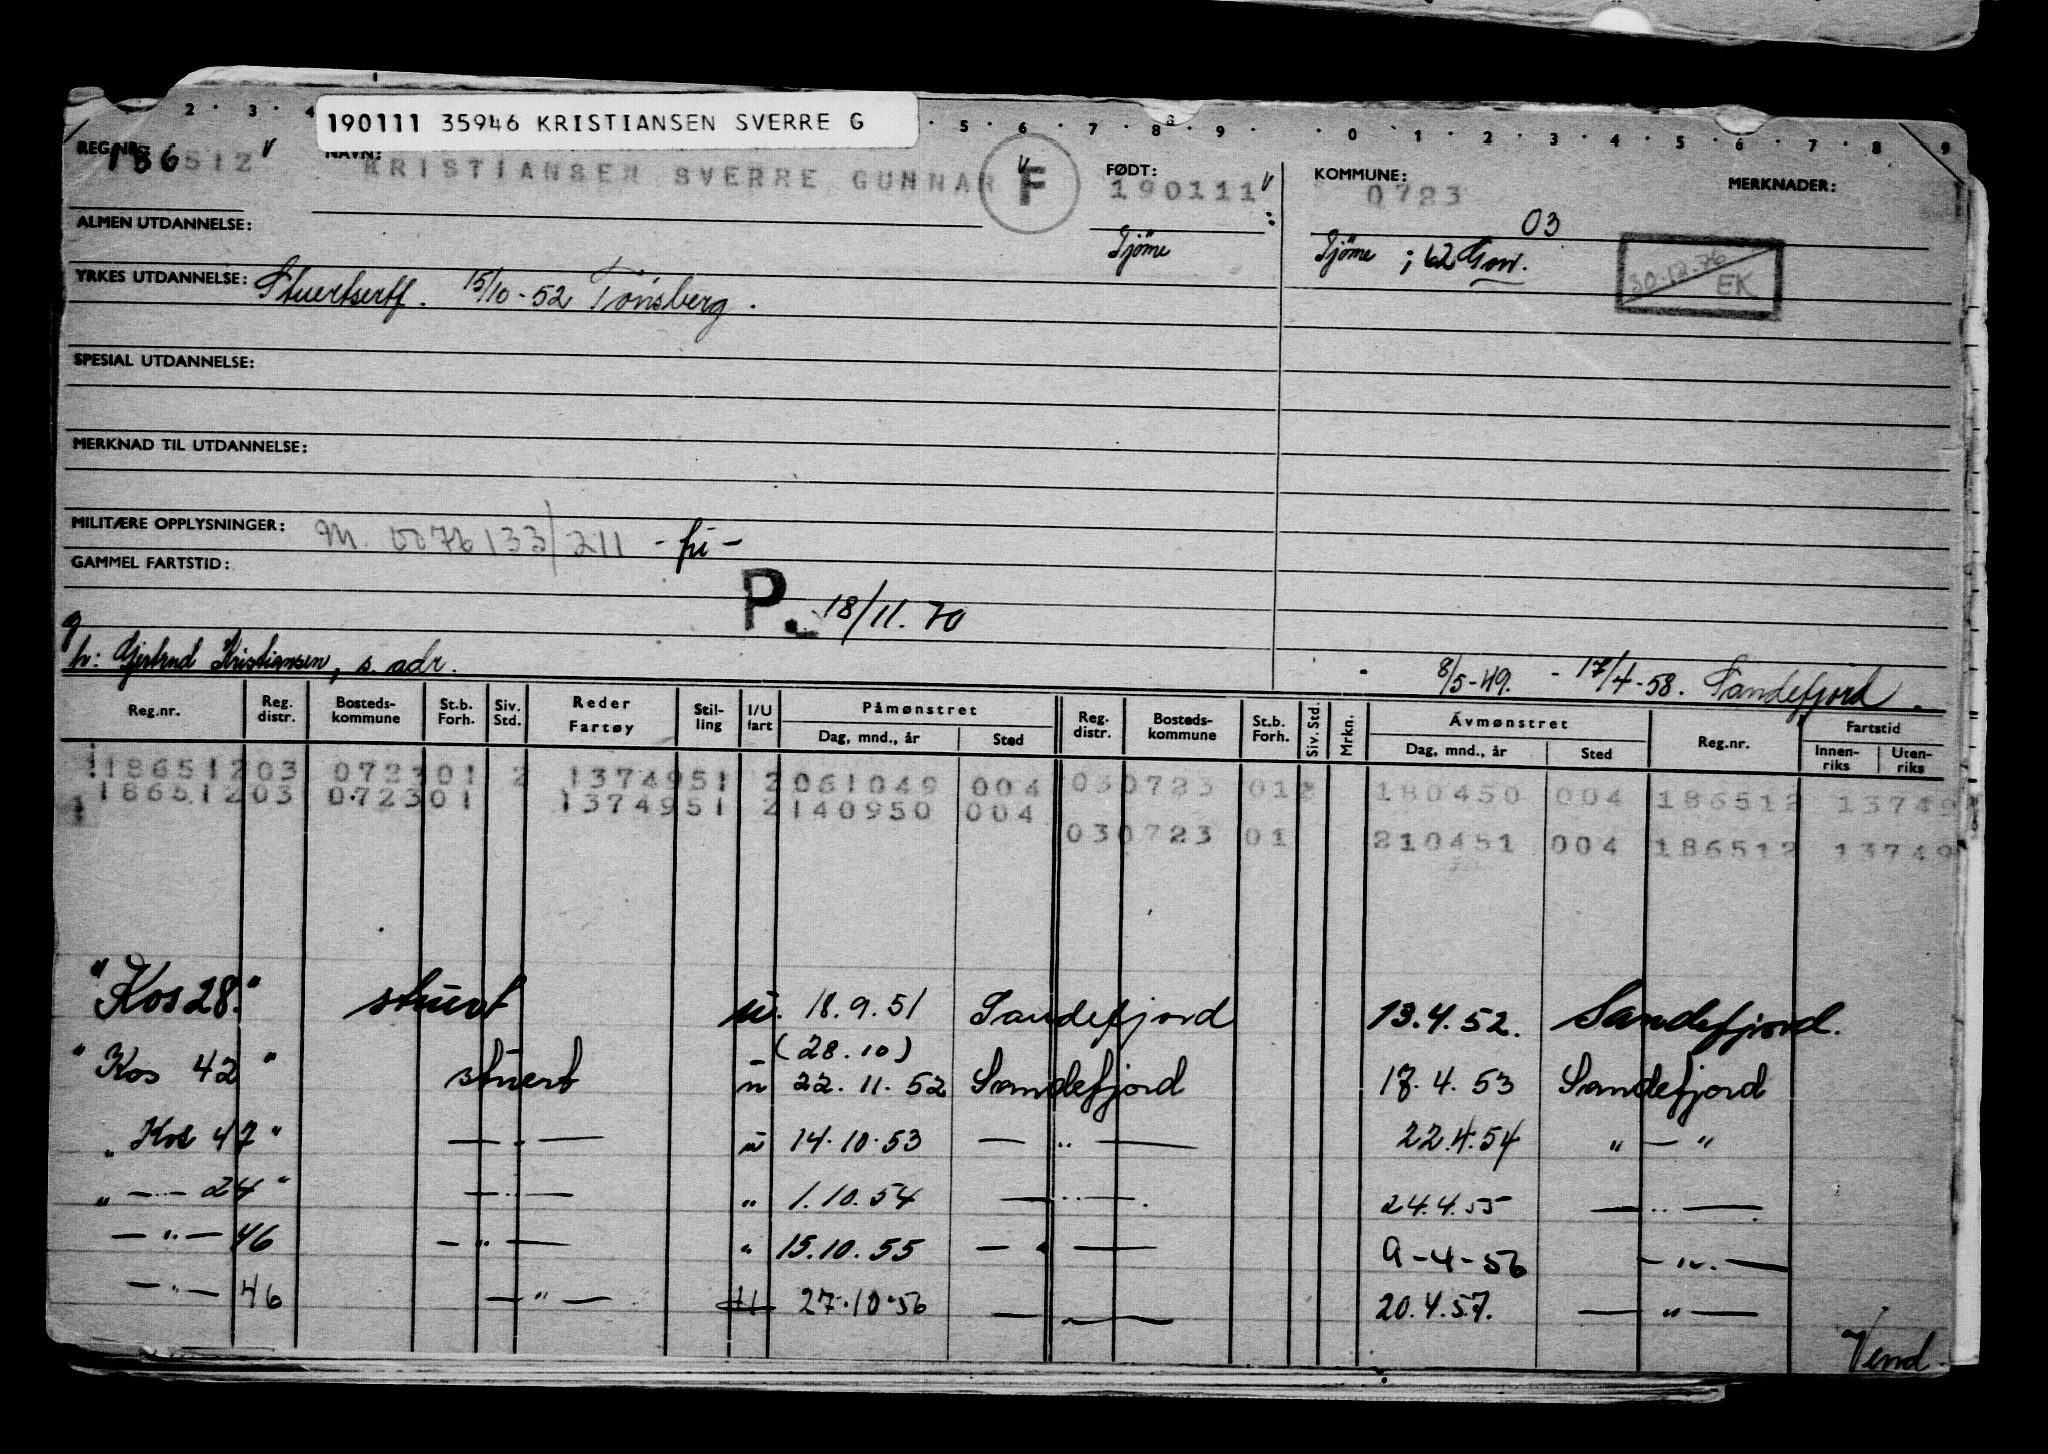 2 · 3 · 4 5 · 6 · 7 · 8 · 9 · · 0 · 1 · 2 · 3 · 4 · 5 · 6 · 7 · 8 · 9
190111 35946 KRISTIANSEN SVERRE G
REG.NR.: NAVN: FØDT: KOMMUNE: MERKNADER:
186512 KRISTIANSEN SVERRE GUNNAR F 190111 0723
03
ALMEN UTDANNELSE: Tjöme Tjöme ; 62
30.12.76
EK
YRKES UTDANNELSE: Stuertsertf. 15/10-52 Tönsberg.
SPESIAL UTDANNELSE:
MERKNAD TIL UTDANNELSE:
MILITÆRE OPPLYSNINGER: M. 0076133/211 - fri -
GAMMEL FARTSTID:
P. 18/11.70
g
h: Gjertrud Kristiansen, s. adr. 8/5-49. - 17/4-58. Sandefjord.
Reg.nr. Reg. distr. Bosteds-kommune St.b. Forh. Siv. Std. Reder Fartøy Stil-ling I/U fart Påmønstret Reg. distr. Bosteds-kommune St.b. Forh. Siv. Std. Mrkn. Avmønstret Reg.nr. Fartstid
Dag, mnd., år Sted Dag, mnd., år Sted Innen-riks Uten-riks
118651203 072301 2 1374951 2061049 004 030723 012 180450 004 186512 13749
118651203 072301 1374951 2140950 004
030723 01 210451 004 186512 13749
"Kos 28." stuert u. 18.9.51 Sandefjord 13.4.52. Sandefjord.
(28.10)
"Kos 42" stuert u 22.11.52 Sandefjord 17.4.53 Sandefjord
"Kos 47" — " — u 14.10.53 — " — 22.4.54 " — "
" — " — 24" — " — " 1.10.54 — " — 24.4.55 — " —
— " — 46 — " — " 15.10.55 — " — 9-4-56 — " —
— " — 46 — " — 27.10.56 — — 20.4.57. — " —
Vend.